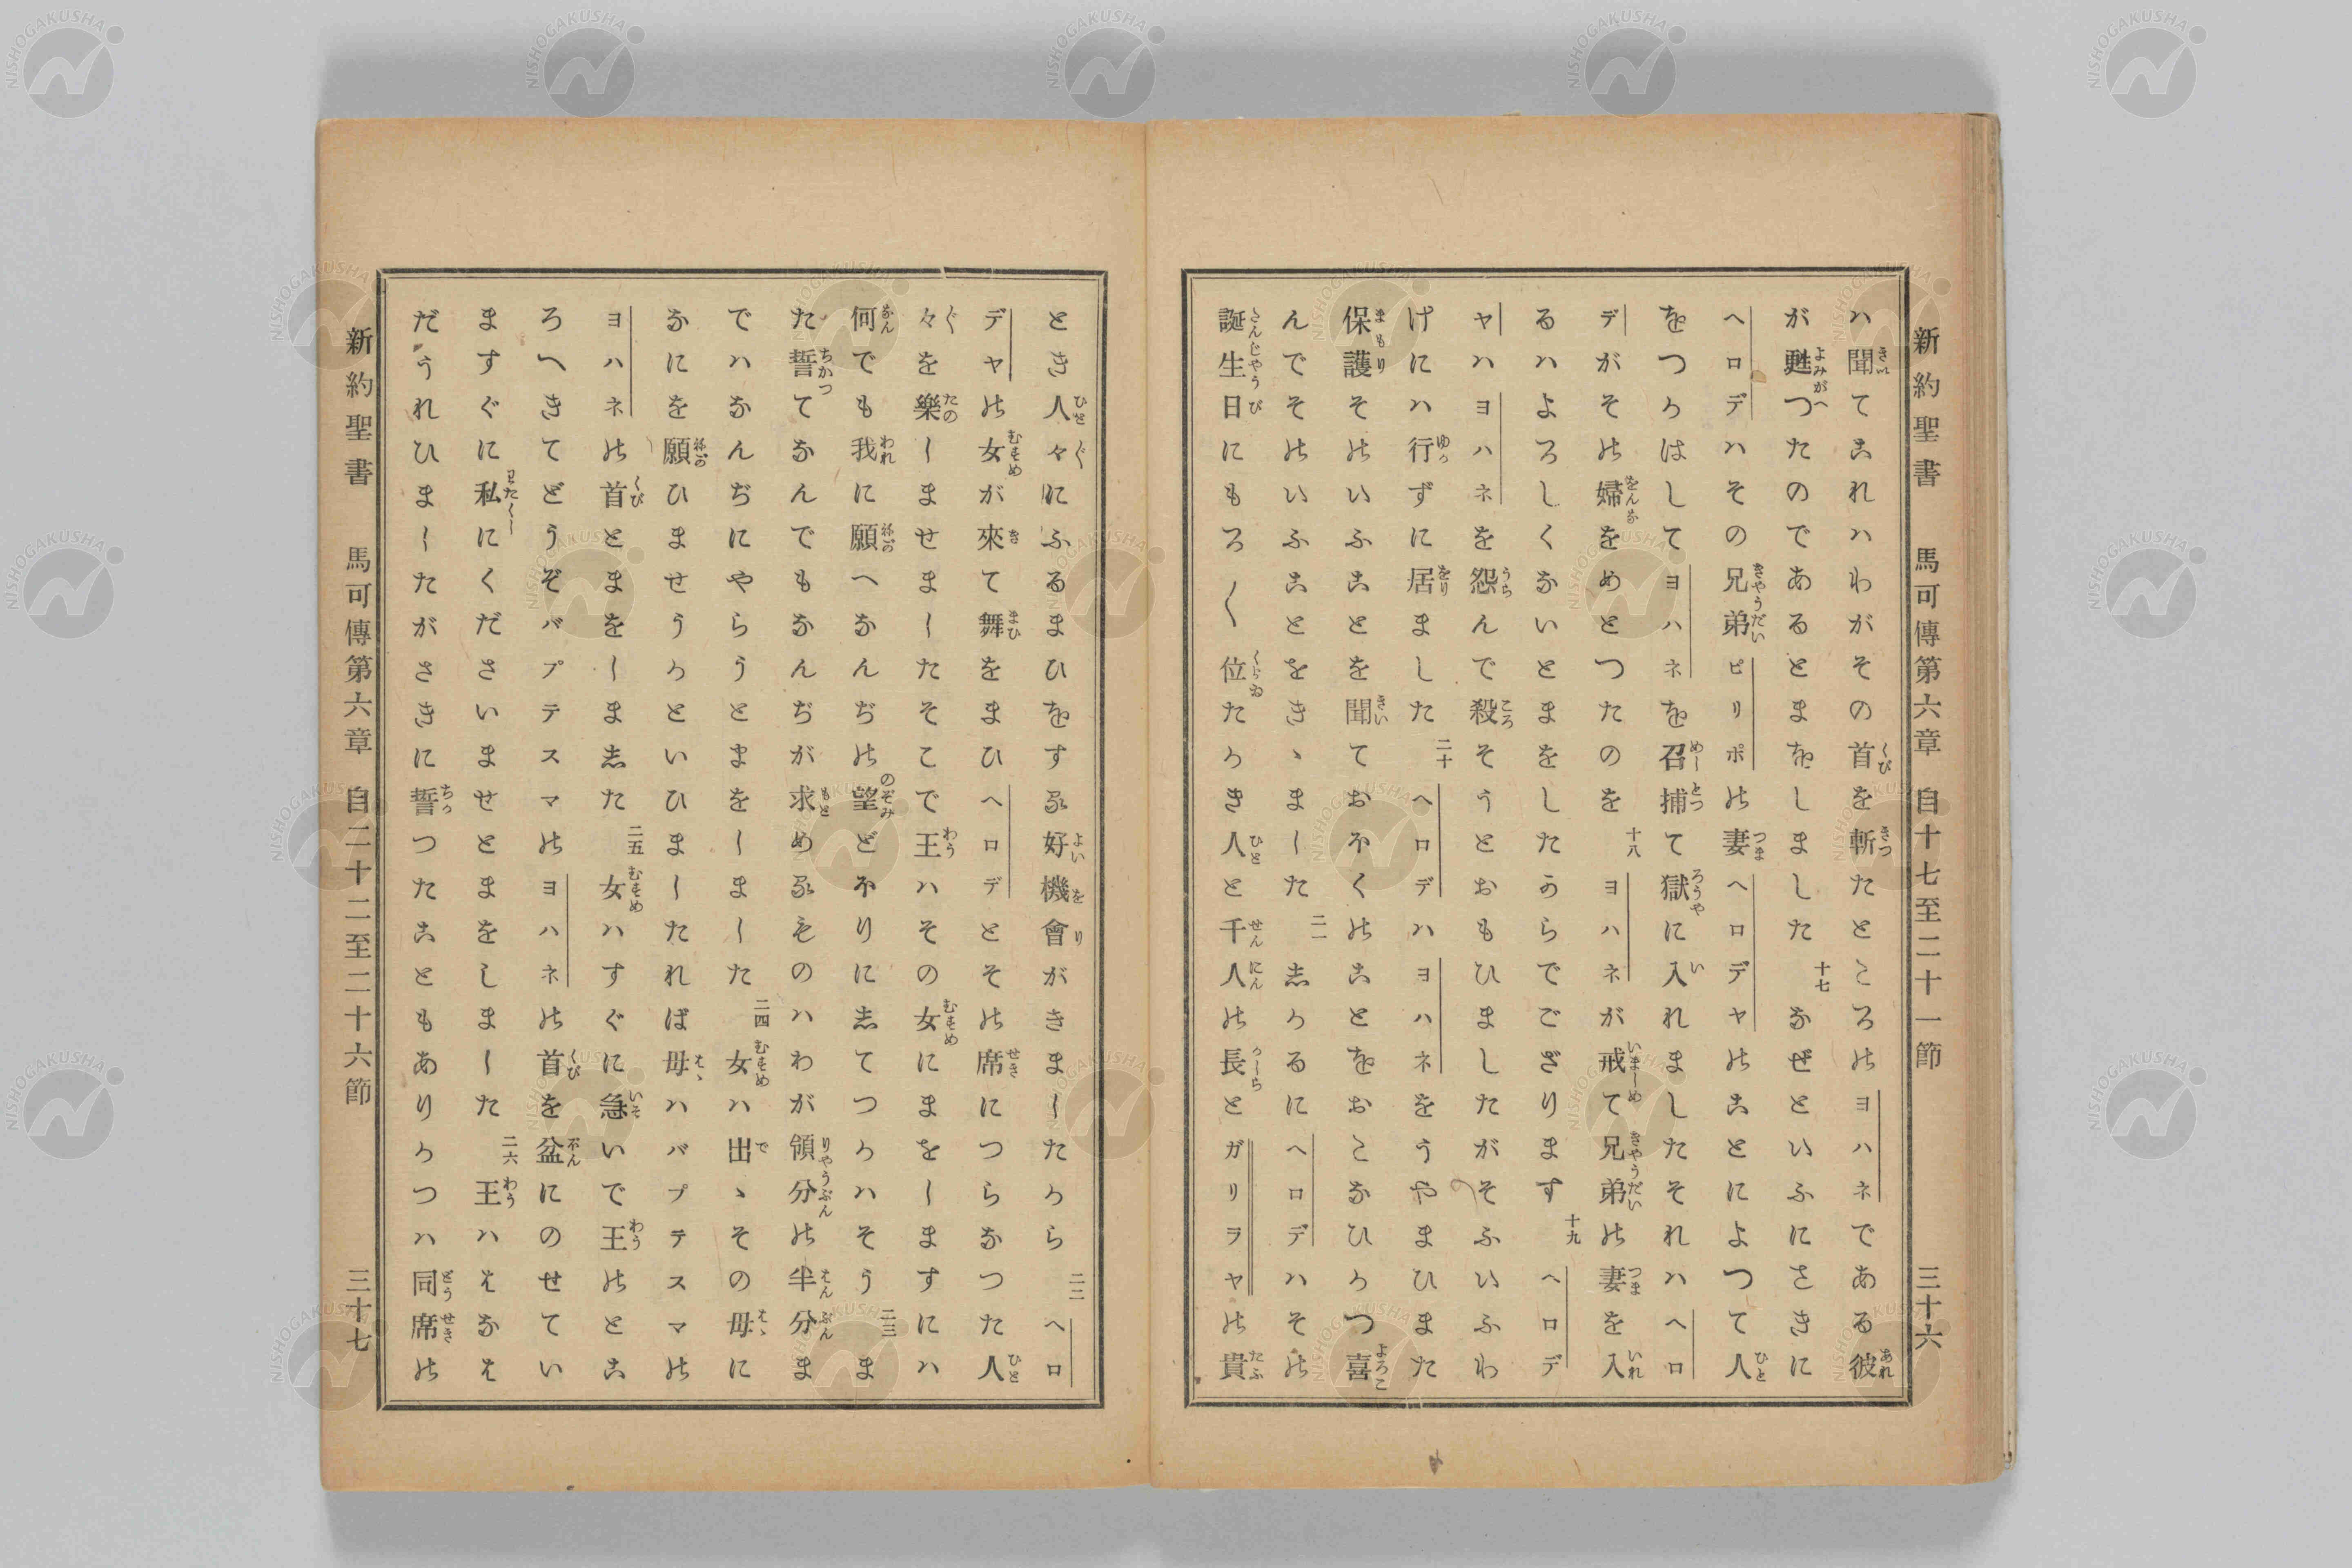 新約聖書　馬可傳第六章　自十七至二十一節　三十六
ハ聞てこれハわがその首を斬たところのヨハネである彼
が甦つたのであるとまをしました 十七 なぜといふにさきに
ヘロデハその兄弟ピリポの妻ヘロデヤのことによつて人
をつかはしてヨハネを召捕て獄に入れましたそれハヘロ
デがその婦をめとつたのを 十八 ヨハネが戒て兄弟の妻を入
るハよろしくないとまをしたからでござります 十九 ヘロデ
ヤハヨハネを怨んで殺そうとおもひましたがそふいふわ
けにハ行ずに居ました 二十 ヘロデハヨハネをうやまひまた
保護そのいふことを聞ておほくのことをおこなひかつ喜
んでそのいふことをきゝました 二一 しかるにヘロデハその
誕生日にもろ〱位たかき人と千人の長とガリラヤの貴
とき人々にふるまひをする好機會がきましたから 二二 ヘロ
デヤの女が來て舞をまひヘロデとその席につらなつた人
々を樂しませましたそこで王ハその女にまをしますにハ
何でも我に願へなんぢの望どほりにしてつかハそう 二三 ま
た誓てなんでもなんぢが求めるものハわが領分の半分ま
でハなんぢにやらうとまをしました 二四 女ハ出ゝその母に
なにを願ひませうかといひましたれば母ハバプテスマの
ヨハネの首とまをしました 二五 女ハすぐに急いで王のとこ
ろへきてどうぞバプテスマのヨハネの首を盆にのせてい
ますぐに私にくださいませとまをしました 二六 王ハはなは
だうれひましたがさきに誓つたこともありかつハ同席の
新約聖書　馬可傳第六章　自二十二至二十六節　三十七
NISHOGAKUSHA